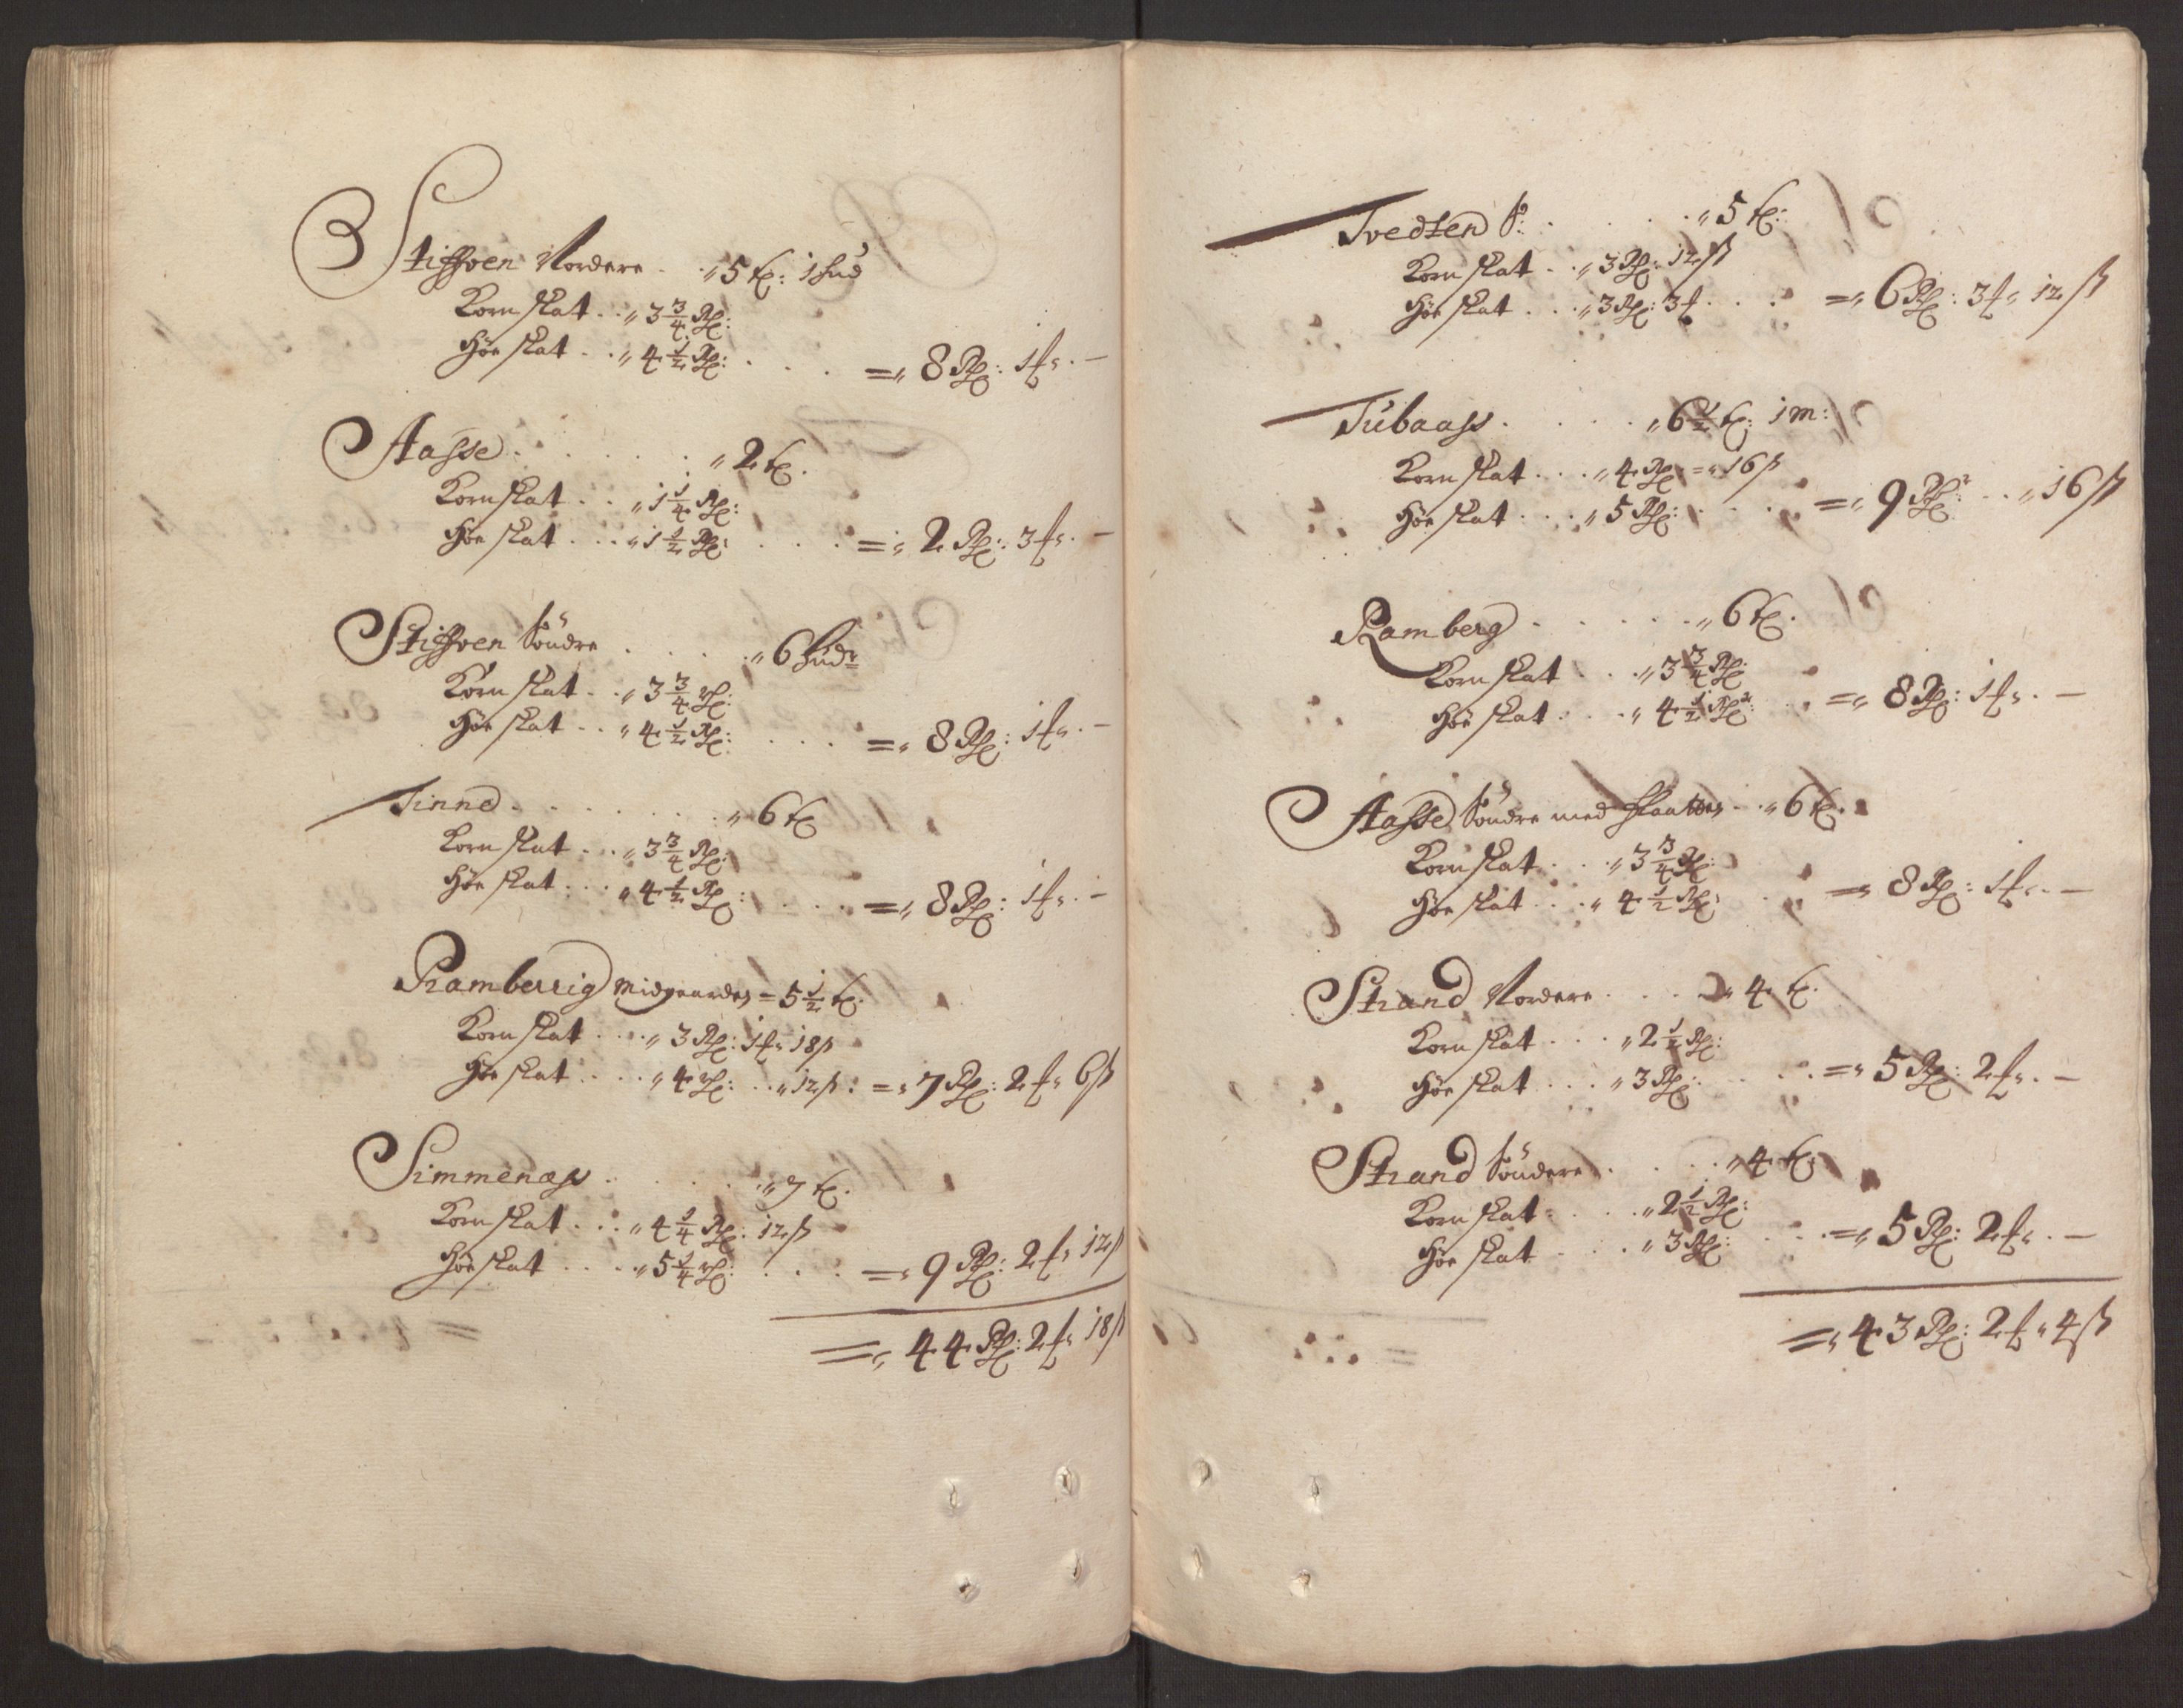 Stiffven Nordere . . „ 5 t: 1 hud
Kornskat . . „ 3 3/4 Rd:
Höeskat . . „ 4 1/2 Rd: . . . = „ 8 Rd: 1 f „ . —
Aasse . . . . . . „ 2 t.
Kornskat . . „ 1 1/4 Rd:
Höeskat . . . „ 1 1/2 Rd: . . . . = „ 2 Rd: 3 f „ . —
Stiffven Söndre . . . . . „ 6 hudr
Kornskat . . „ 3 3/4 Rd:
Höeskat . . „ 4 1/2 Rd: . . . . = „ 8 Rd: 1 f „ . —
Tinne . . . . . . . „ 6 t
Kornskat . . . „ 3 3/4 Rd:
Höeskat . . . „ 4 1/2 Rd: . . . . = „ 8 Rd: 1 f „ . —
Ramberrig Midgaarden = 5 1/2 t.
Kornskat . . . „ 3 Rd: 1 f „ 18 ß
Höeskat . . . „ 4 Rd: . . „ 12 ß : = „ 7 Rd: 2 f „ 6 ß
Simmenæs . . . . . . „ 7 t.
Kornskat . . . „ 4 1/4 Rd: 12 ß
Höeskat . . . . „ 5 1/4 Rd: . . . = „ 9 Rd: 2 f „ 12 ß
= „ 44 Rd: 2 f „ 18 ß
Tvedten . . . . . „ 5 t:
Kornskat . . „ 3 Rd: 12 ß
Höeskat . . . „ 3 Rd: 3 f . . . = „ 6 Rd: 3 f „ 12 ß
Tubaas . . . . . „ 6 1/2 t: 1 m:
Kornskat . . . „ 4 Rd: = „ 16 ß
Höeskat . . . „ 5 Rd: . . . . = „ 9 Rd: . . „ 16 ß
Ramberg . . . . . . „ 6 t.
Kornskat . . . „ 3 3/4 Rd:
Höeskat . . . „ 4 1/2 Rd: . . = „ 8 Rd: 1 f „ . —
Aasse Söndre med . . „ 6 t.
Kornskat . . . „ 3 3/4 Rd:
Höeskat . . . „ 4 1/2 Rd: . . . = „ 8 Rd: 1 f „ . —
Strand Nordere . . . . „ 4 t.
Kornskat . . . „ 2 1/2 Rd:
Höeskat . . . „ 3 Rd: . . . . = „ 5 Rd: 2 f „ . —
Strand Söndere . . . . „ 4 t:
Kornskat . . . . „ 2 1/2 Rd:
Höeskat . . . „ 3 Rd: . . . . = „ 5 Rd: 2 f „ . —
= „ 43 Rd: 2 f „ 4 ß